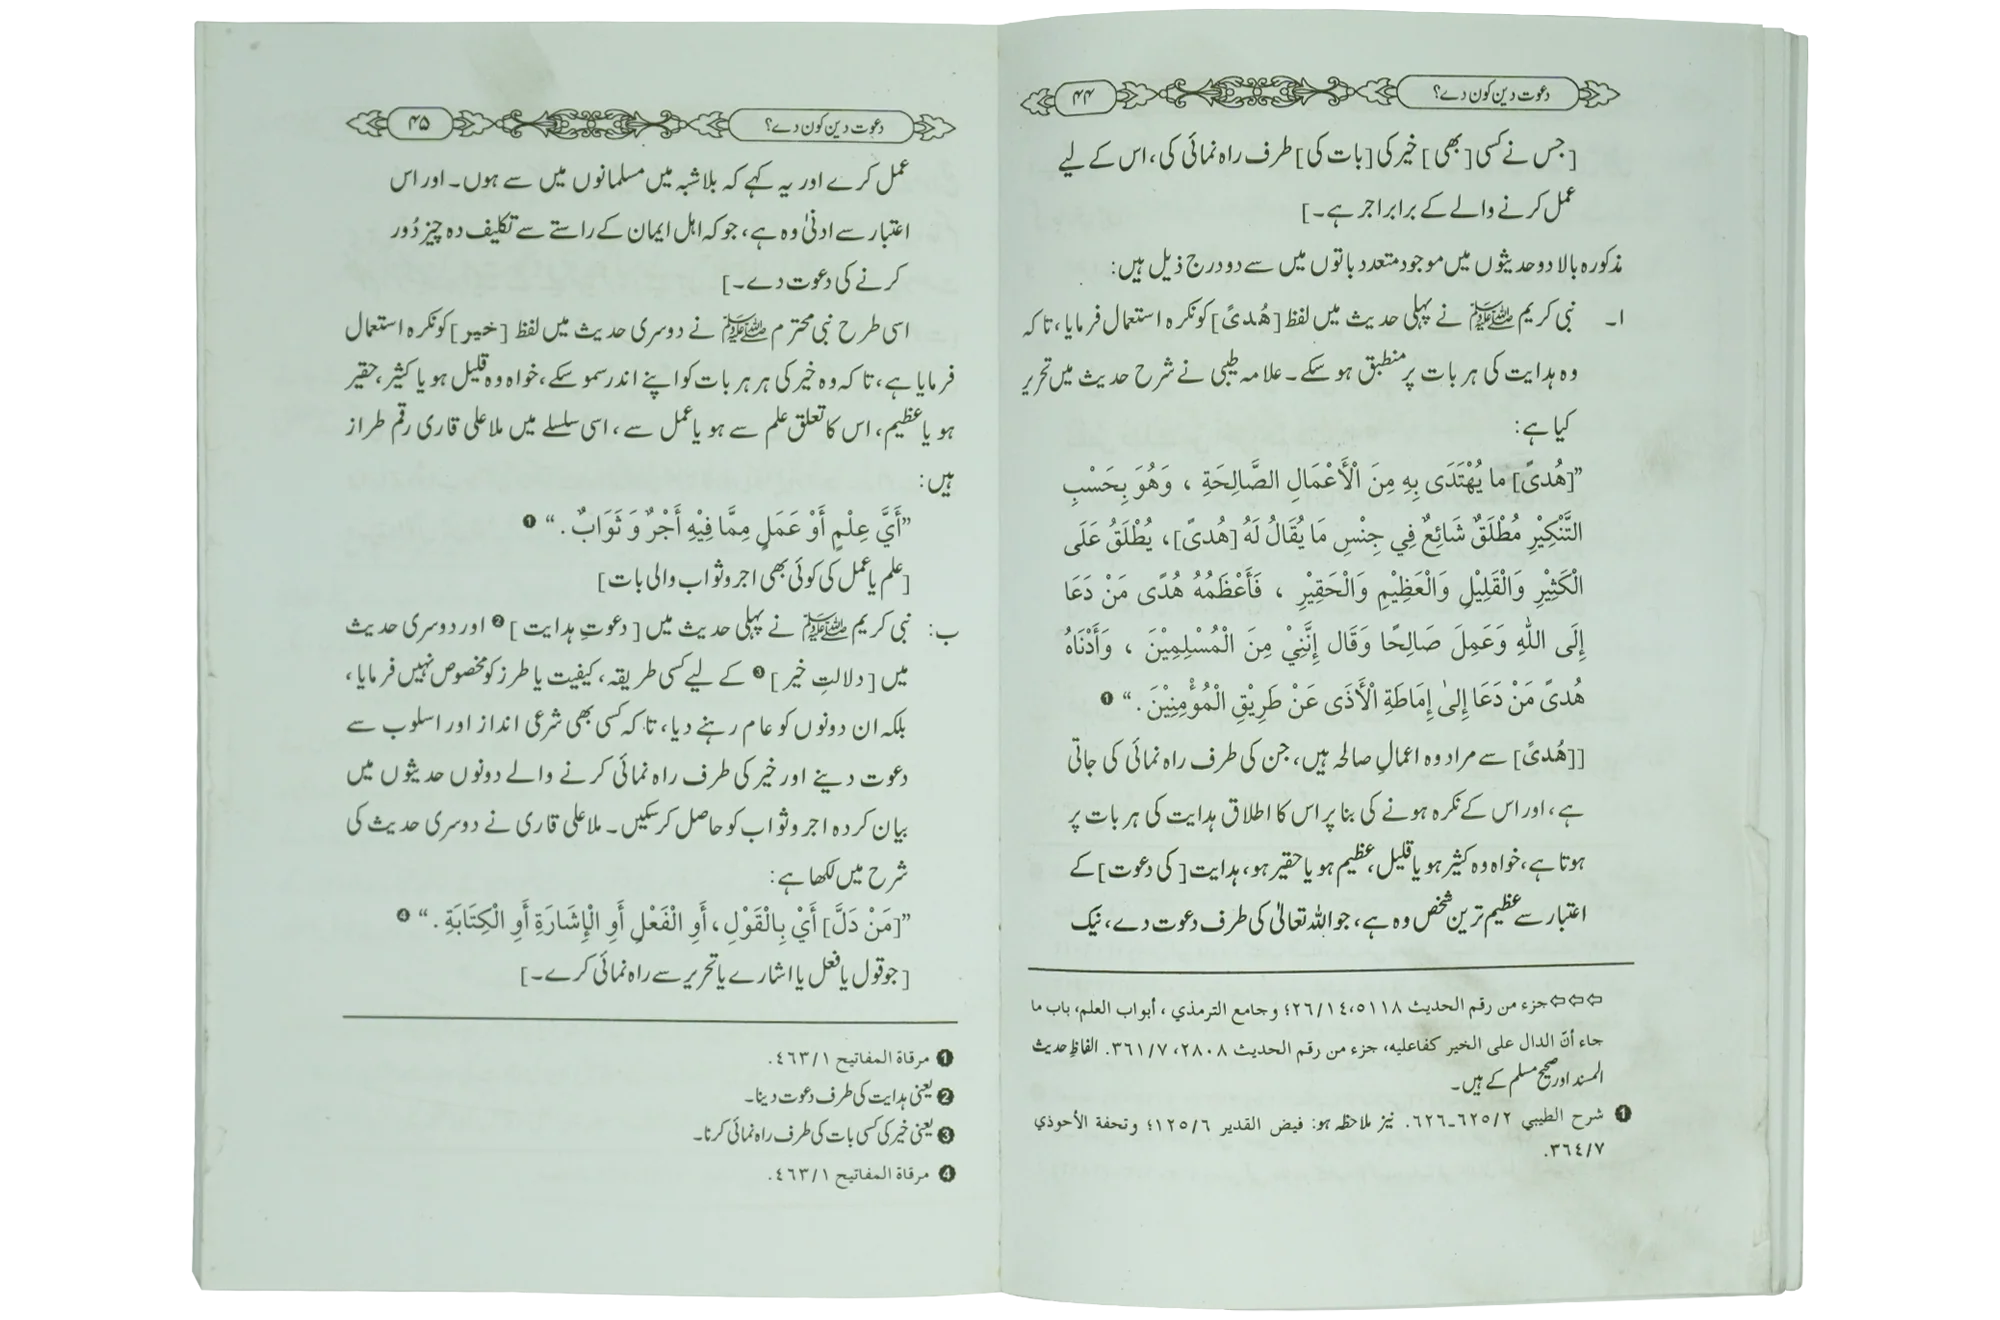 دعوت دین کون دے؟
۴۴
[جس نے کسی [بھی] خیر کی [بات کی] طرف راہ نمائی کی، اس کے لیے
عمل کرنے والے کے برابر اجر ہے۔]
مذکورہ بالا دو حدیثوں میں موجود متعدد باتوں میں سے دو درج ذیل ہیں:
ا۔ نبی کریم ﷺ نے پہلی حدیث میں لفظ [هُدىً] کو نکرہ استعمال فرمایا، تاکہ
وہ ہدایت کی ہر بات پر منطبق ہو سکے۔ علامہ طیبی نے شرح حدیث میں تحریر
کیا ہے:
”[هُدىً] ما يُهْتَدَى بِهِ مِنَ الْأَعْمَالِ الصَّالِحَةِ ، وَهُوَ بِحَسْبِ
التَّنْكِيْرِ مُطْلَقٌ شَائِعٌ فِي جِنْسِ مَا يُقَالُ لَهُ [هُدىً]، يُطْلَقُ عَلَى
الْكَثِيْرِ وَالْقَلِيْلِ وَالْعَظِيْمِ وَالْحَقِيْرِ ، فَأَعْظَمُهُ هُدًى مَنْ دَعَا
إِلَى اللهِ وَعَمِلَ صَالِحًا وَقَال إِنَّنِيْ مِنَ الْمُسْلِمِيْنَ ، وَأَدْنَاهُ
هُدىً مَنْ دَعَا إِلىٰ إِمَاطَةِ الْأَذَى عَنْ طَرِيْقِ الْمُؤْمِنِيْنَ .“ ❶
[[هُدىً] سے مراد وہ اعمالِ صالحہ ہیں، جن کی طرف راہ نمائی کی جاتی
ہے، اور اس کے نکرہ ہونے کی بنا پر اس کا اطلاق ہدایت کی ہر بات پر
ہوتا ہے، خواہ وہ کثیر ہو یا قلیل، عظیم ہو یا حقیر ہو، ہدایت [کی دعوت] کے
اعتبار سے عظیم ترین شخص وہ ہے، جو اللہ تعالیٰ کی طرف دعوت دے، نیک
⇦⇦⇦ جزء من رقم الحديث ٥١١٨، ٢٦/١٤؛ وجامع الترمذي ، أبواب العلم، باب ما
جاء أنّ الدال على الخير كفاعليه، جزء من رقم الحديث ٢٨٠٨، ٣٦١/٧. الفاظِ حدیث
المسند اور صحیح مسلم کے ہیں۔
❶ شرح الطيبي ٦٢٥/٢-٦٢٦. نیز ملاحظہ ہو: فيض القدير ١٢٥/٦؛ وتحفة الأحوذي
٣٦٤/٧.
دعوت دین کون دے؟
۴۵
عمل کرے اور یہ کہے کہ بلاشبہ میں مسلمانوں میں سے ہوں۔ اور اس
اعتبار سے ادنیٰ وہ ہے، جو کہ اہل ایمان کے راستے سے تکلیف دہ چیز دُور
کرنے کی دعوت دے۔]
اسی طرح نبی محترم ﷺ نے دوسری حدیث میں لفظ [خیر] کو نکرہ استعمال
فرمایا ہے، تاکہ وہ خیر کی ہر ہر بات کو اپنے اندر سمو سکے، خواہ وہ قلیل ہو یا کثیر، حقیر
ہو یا عظیم، اس کا تعلق علم سے ہو یا عمل سے، اسی سلسلے میں ملا علی قاری رقم طراز
ہیں:
”أَيَّ عِلْمٍ أَوْ عَمَلٍ مِمَّا فِيْهِ أَجْرٌ وَ ثَوَابٌ .“ ❶
[علم یا عمل کی کوئی بھی اجر و ثواب والی بات]
ب: نبی کریم ﷺ نے پہلی حدیث میں [دعوتِ ہدایت] ❷ اور دوسری حدیث
میں [دلالتِ خیر] ❸ کے لیے کسی طریقہ، کیفیت یا طرز کو مخصوص نہیں فرمایا،
بلکہ ان دونوں کو عام رہنے دیا، تاکہ کسی بھی شرعی انداز اور اسلوب سے
دعوت دینے اور خیر کی طرف راہ نمائی کرنے والے دونوں حدیثوں میں
بیان کردہ اجر و ثواب کو حاصل کر سکیں۔ ملا علی قاری نے دوسری حدیث کی
شرح میں لکھا ہے:
”[مَنْ دَلَّ] أَيْ بِالْقَوْلِ، أَوِ الْفَعْلِ أَوِ الْإِشَارَةِ أَوِ الْكِتَابَةِ .“ ❹
[جو قول یا فعل یا اشارے یا تحریر سے راہ نمائی کرے۔]
❶ مرقاة المفاتيح ٤٦٣/١.
❷ یعنی ہدایت کی طرف دعوت دینا۔
❸ یعنی خیر کی کسی بات کی طرف راہ نمائی کرنا۔
❹ مرقاة المفاتيح ٤٦٣/١.